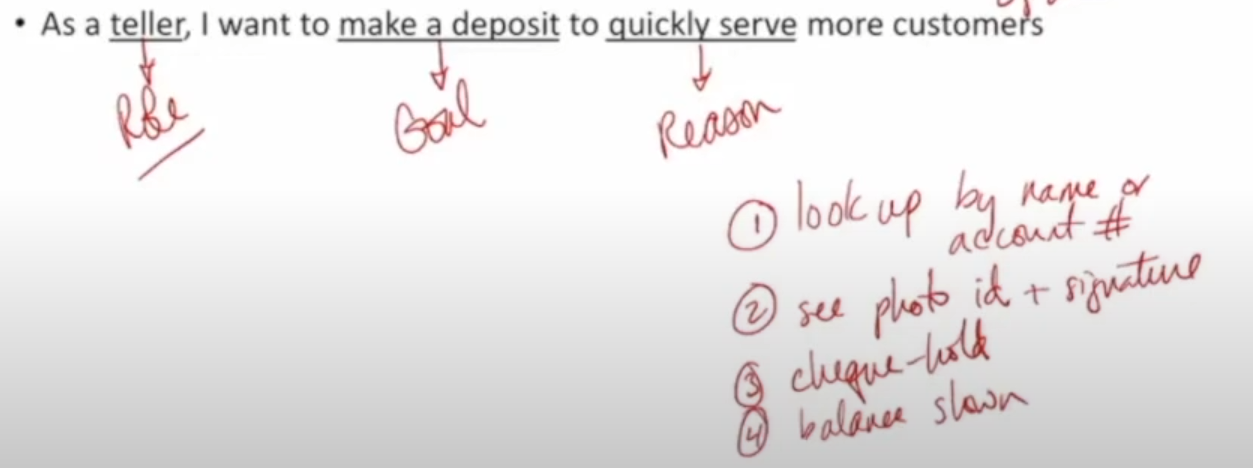 • As a teller, I want to make a deposit to quickly serve more customers
Role Goal Reason
① look up by name or
account #
② see photo id + signature
③ cheque-hold
④ balance shown